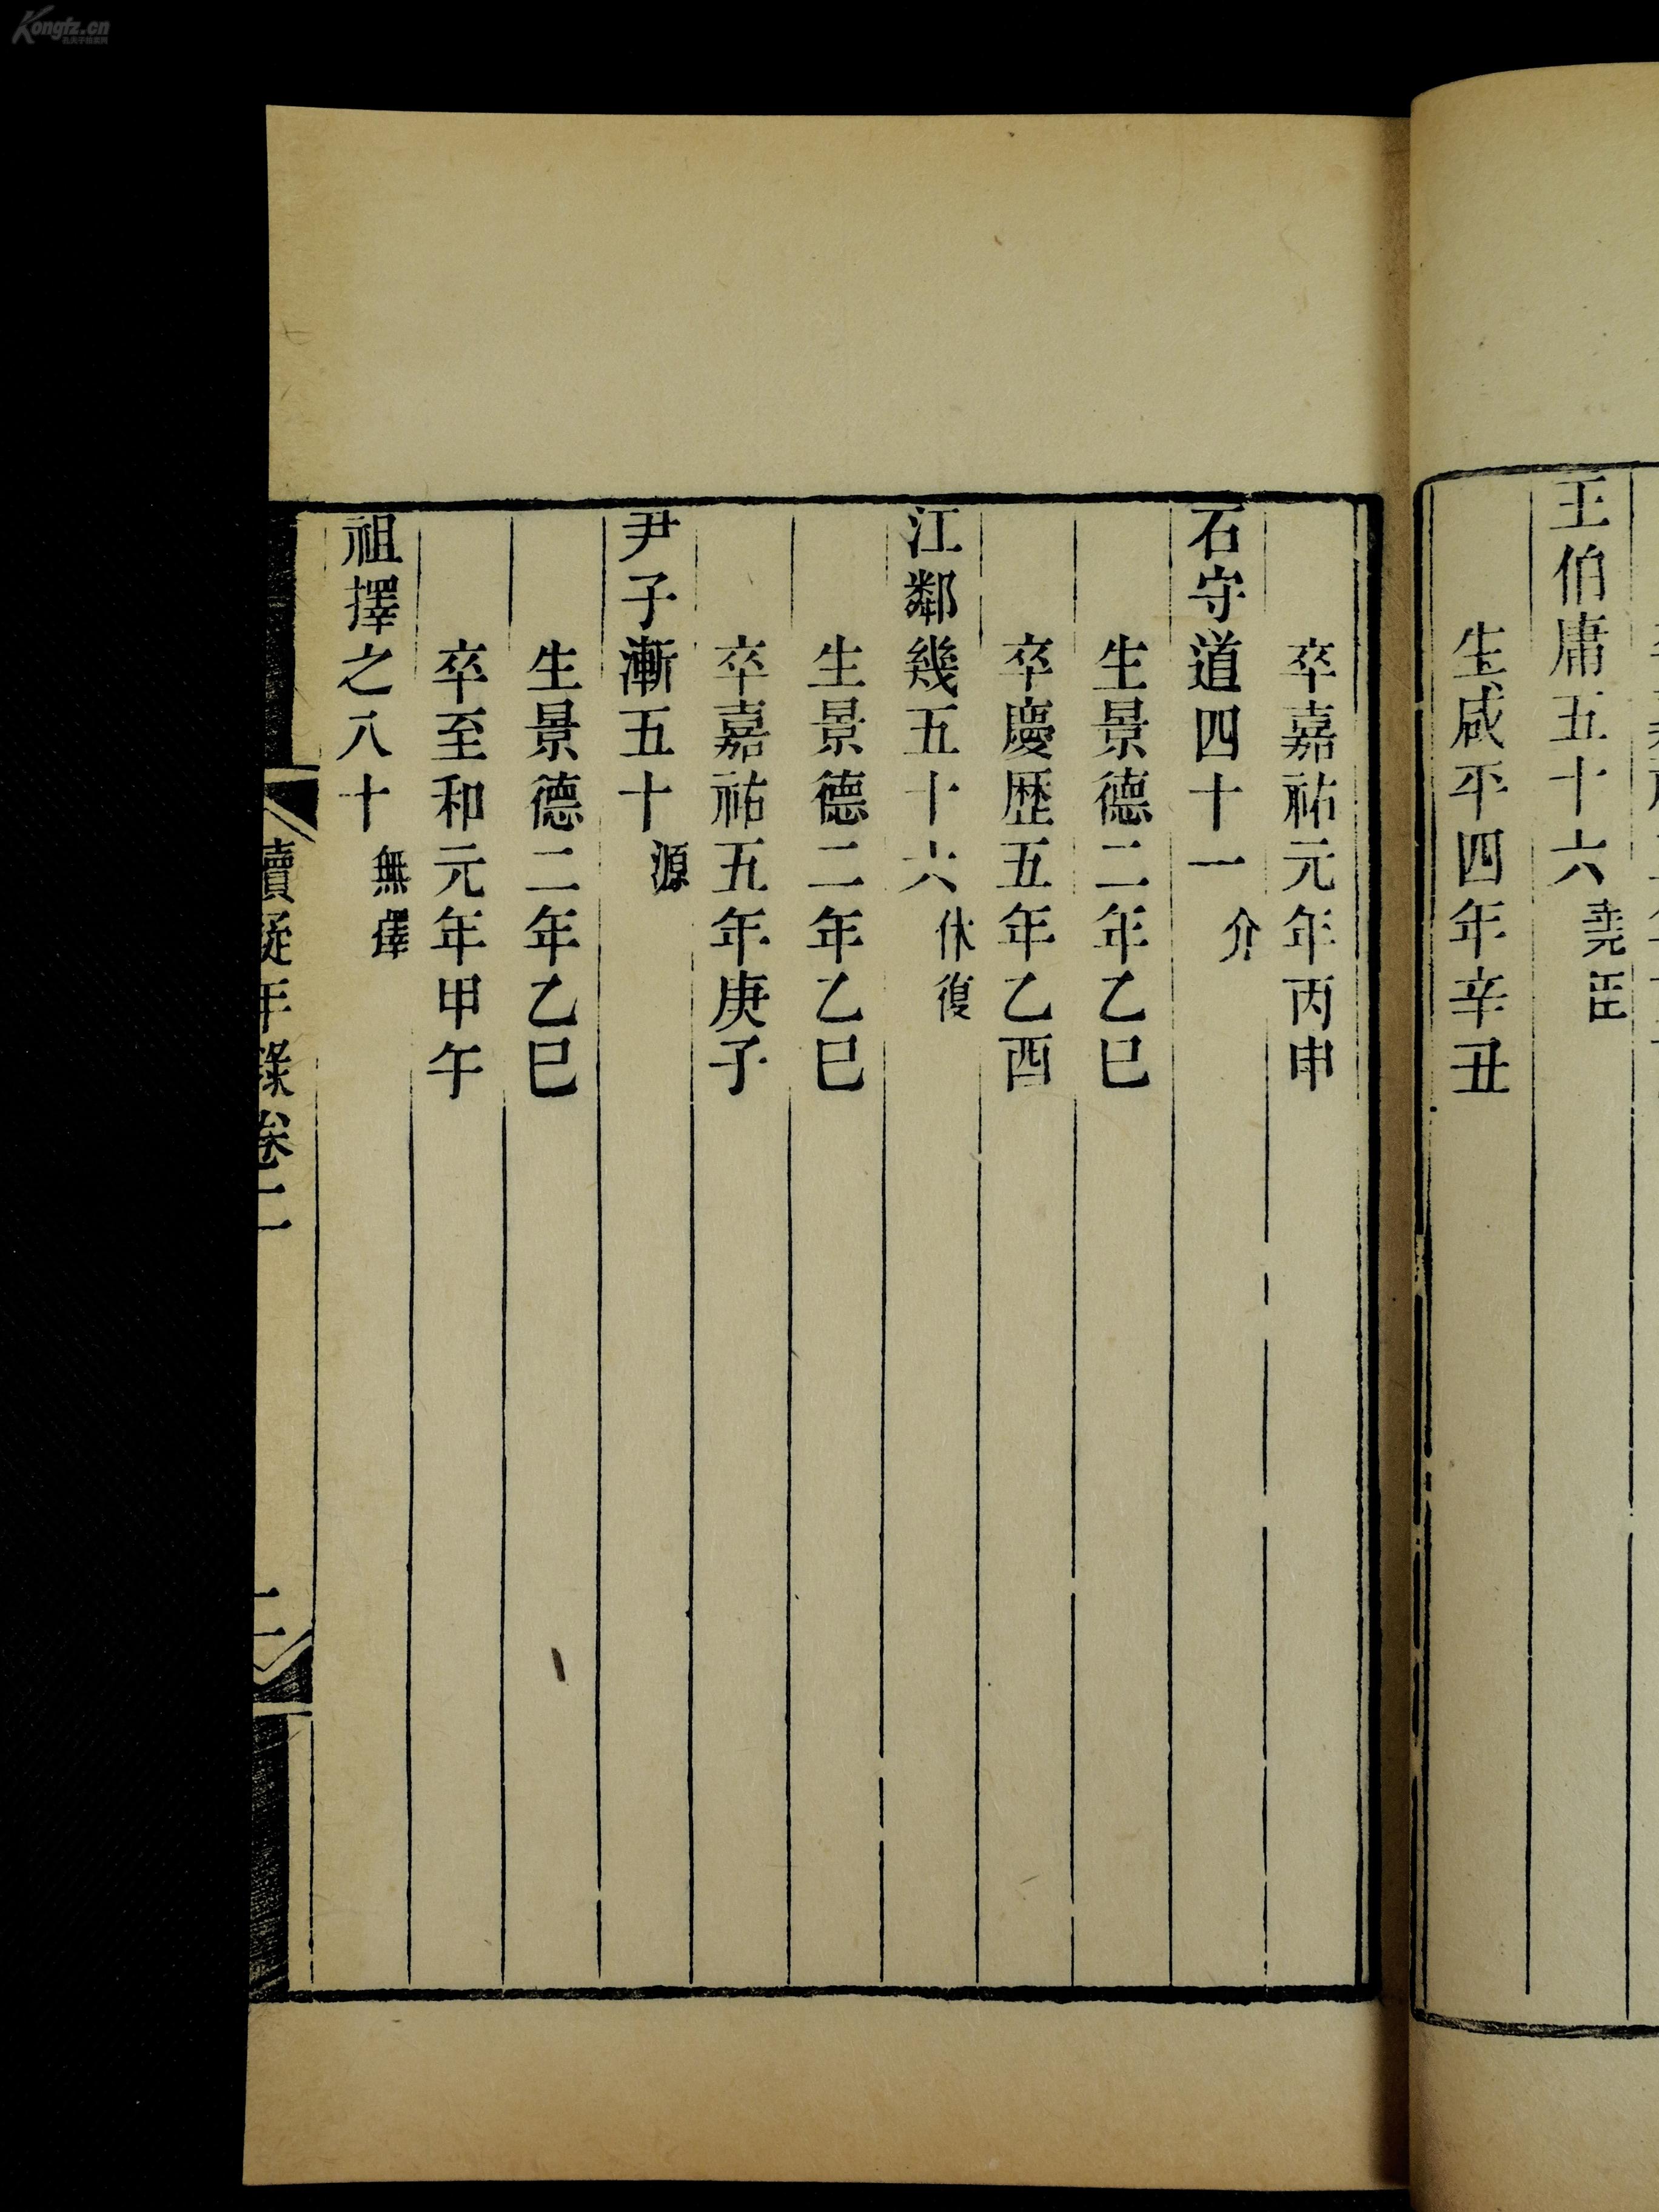 Kongfz.cn
王伯庸五十六堯臣
生咸平四年辛丑
卒嘉祐元年丙申
石守道四十一介
生景德二年乙巳
卒慶歷五年乙酉
江鄰幾五十六休復
生景德二年乙巳
卒嘉祐五年庚子
尹子漸五十源
生景德二年乙巳
卒至和元年甲午
祖擇之八十無擇
續疑年錄卷二
二